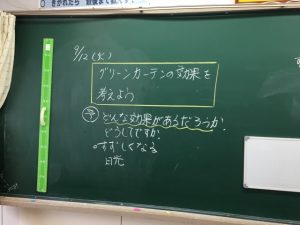 9/12(火)
グリーンカーテンの効果を
考えよう
予 どんな効果があるだろうか?
どうしてですか?
。すずしくなる
日光